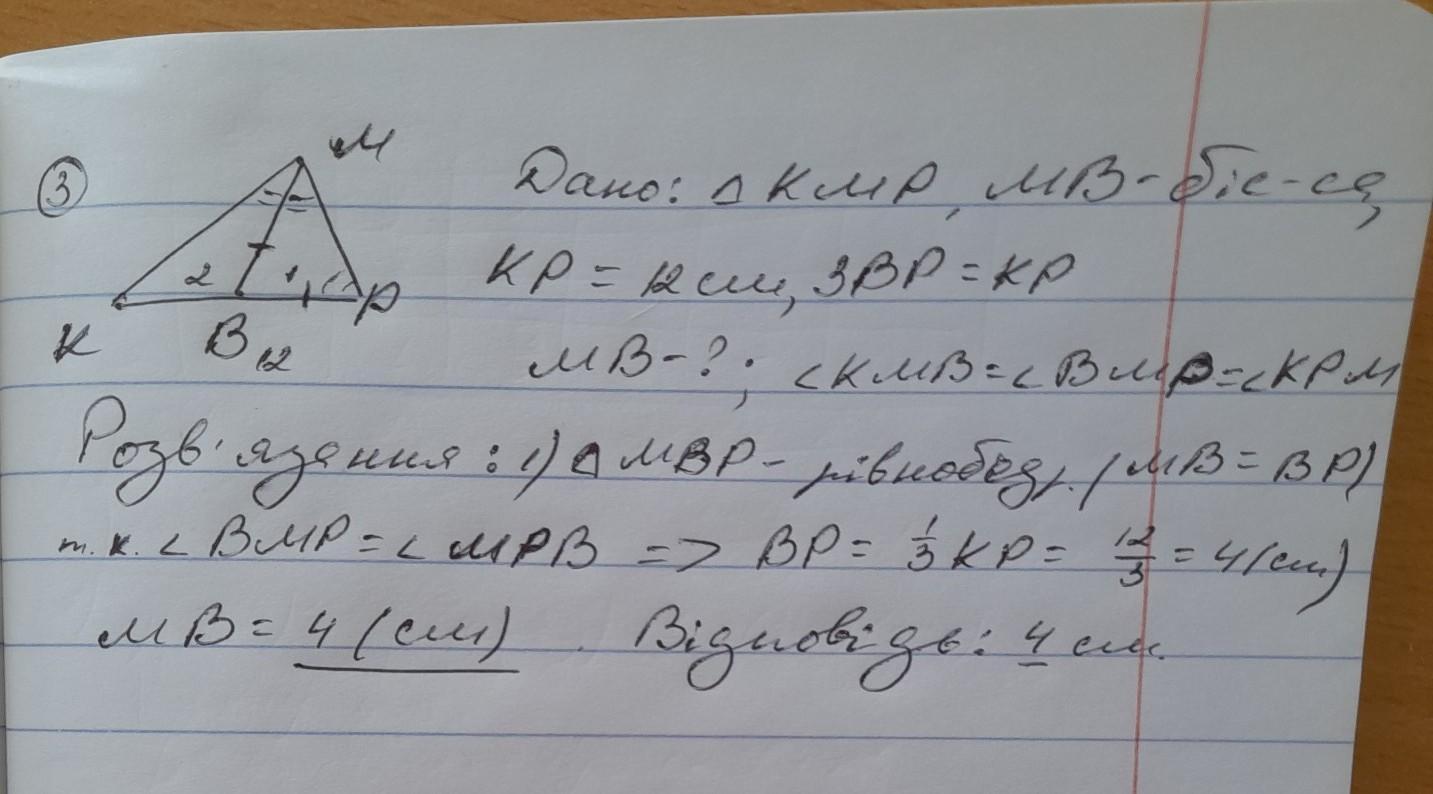 ③ M Дано: △ KMP, MB - біс-са,
2 1 P KP = 12 см, 3BP = KP
K B 12 MB - ?; ∠KMB = ∠BMP = ∠KPM
Розв'язання: 1) △ MBP - рівнобедр. (MB = BP)
т.к. ∠BMP = ∠MPB => BP = 1/3 KP = 12/3 = 4 (см)
MB = 4 (см). Відповідь: 4 см.